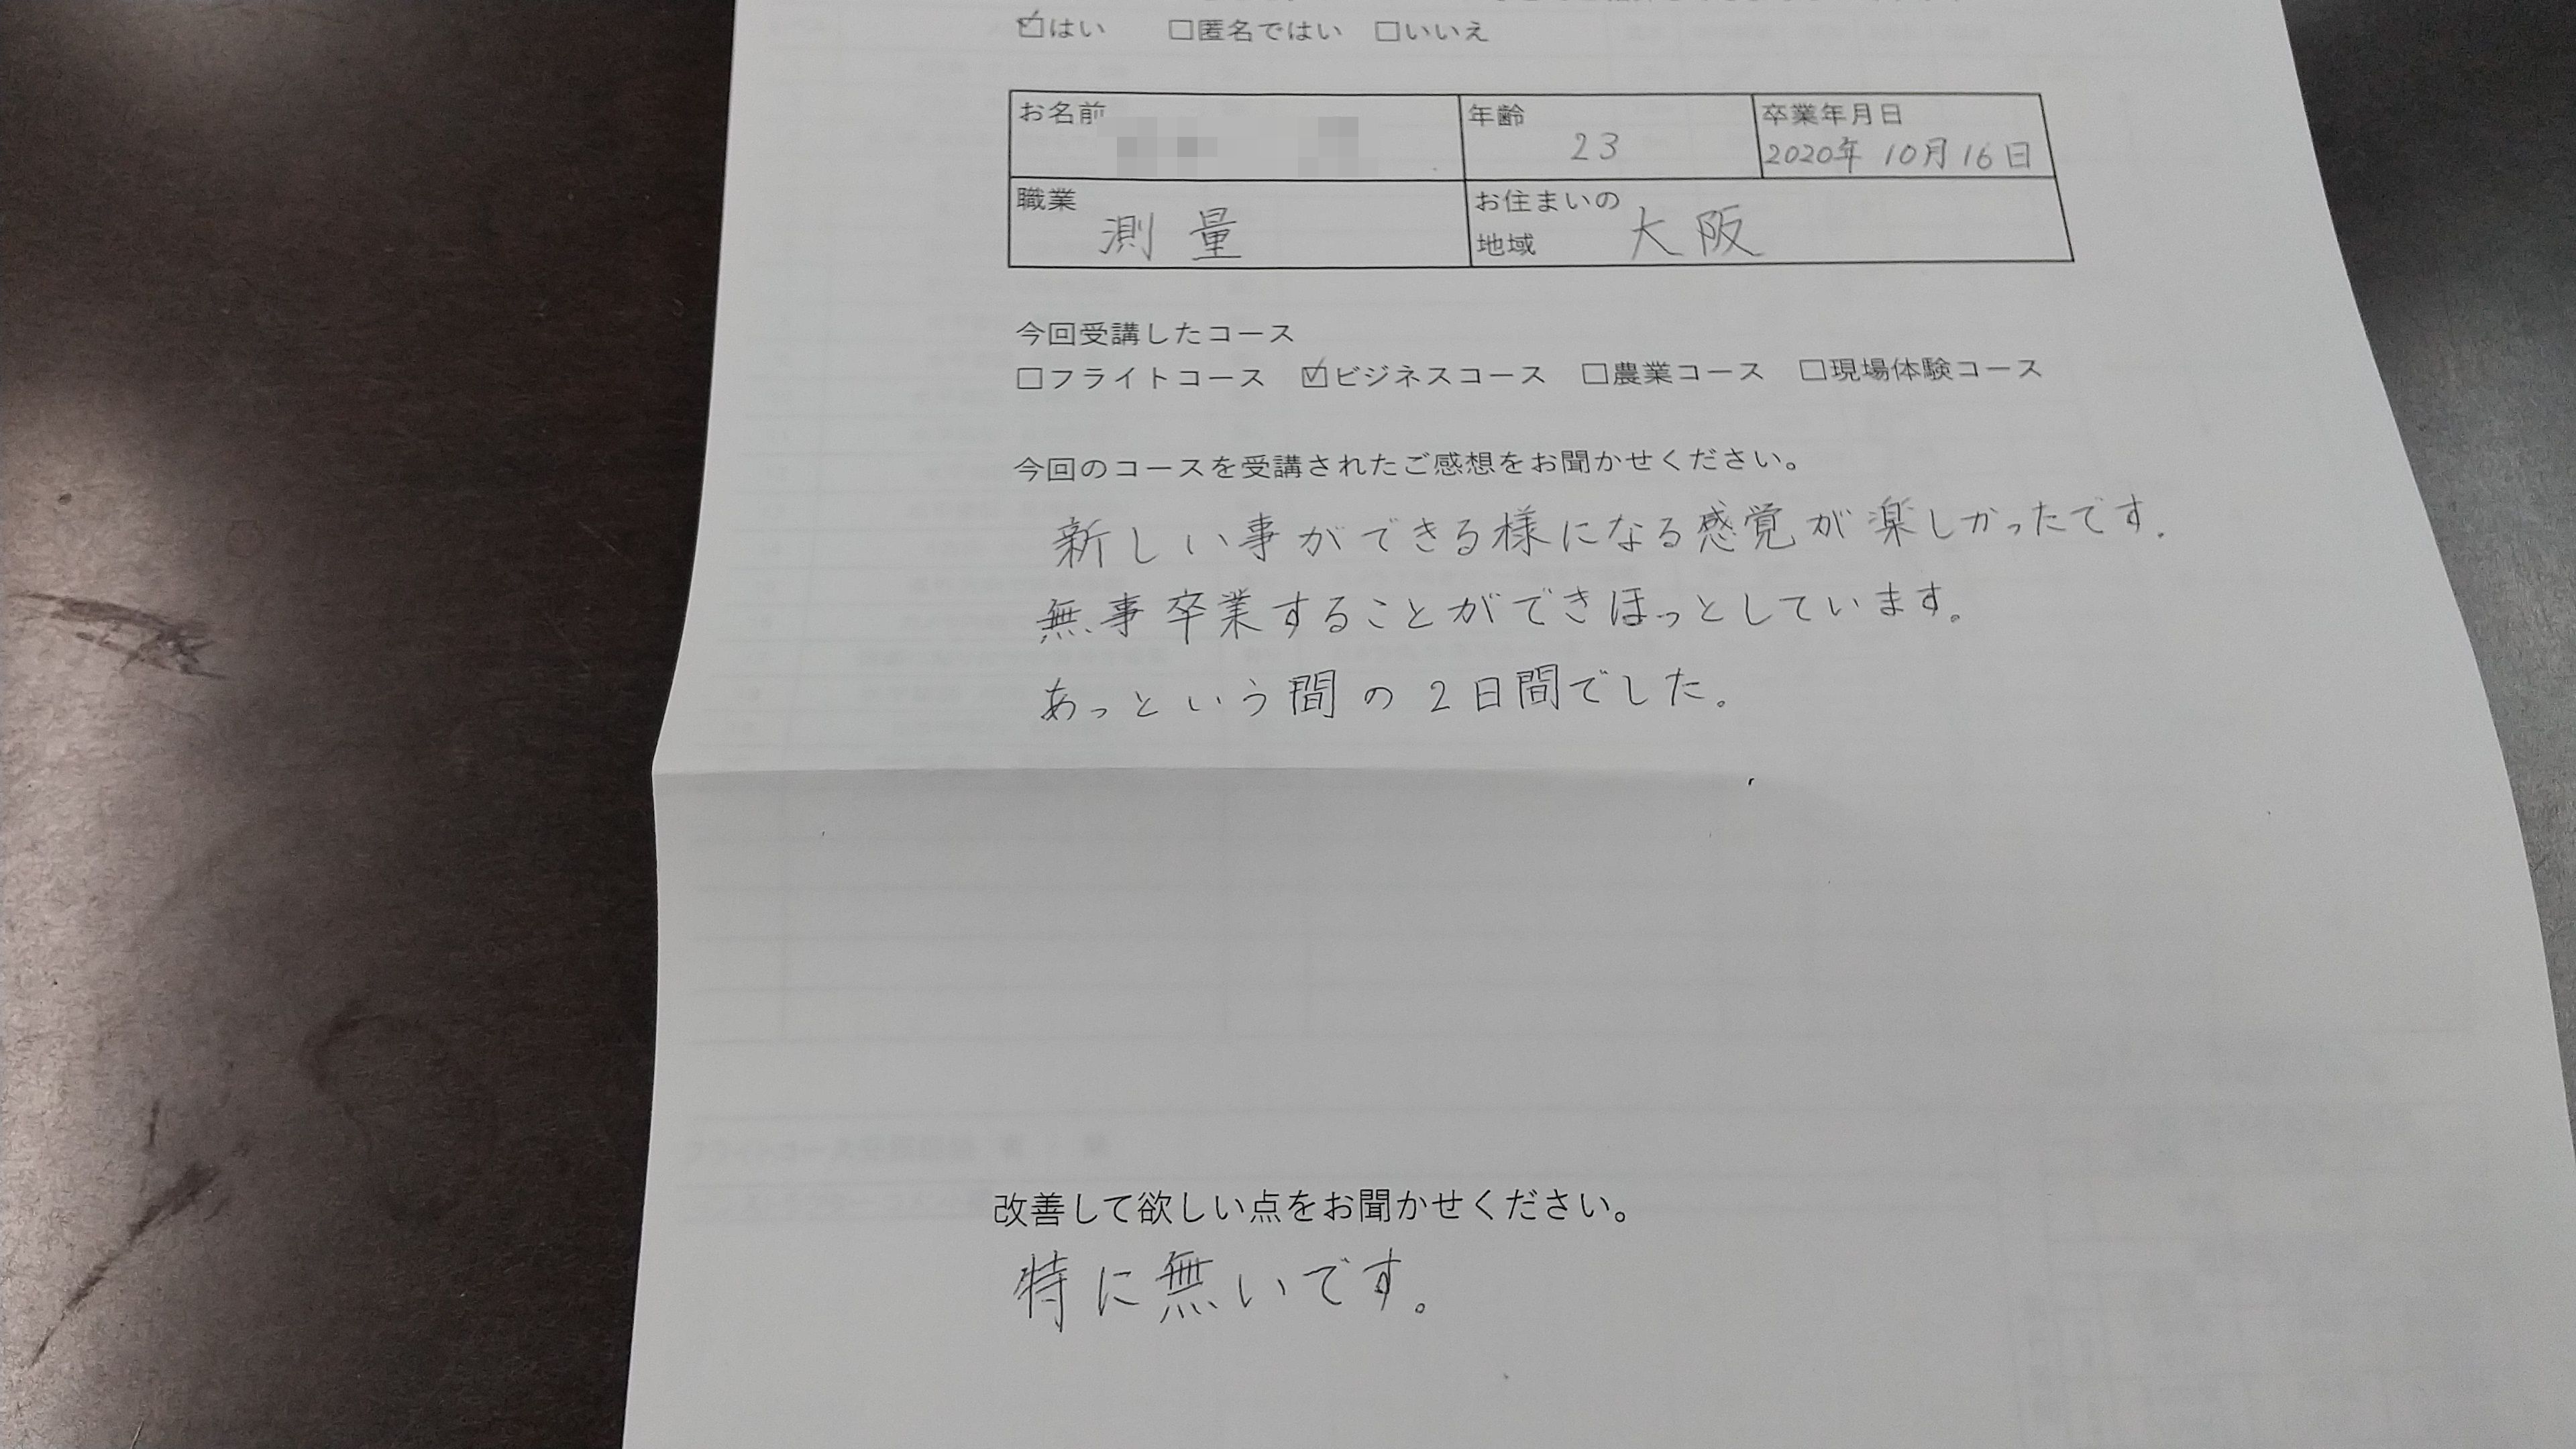 ☑はい　□匿名ではい　□いいえ
お名前
年齢 23
卒業年月日 2020年 10月16日
職業 測量
お住まいの地域 大阪
今回受講したコース
□フライトコース　☑ビジネスコース　□農業コース　□現場体験コース
今回のコースを受講されたご感想をお聞かせください。
新しい事ができる様になる感覚が楽しかったです.
無事卒業することができほっとしています。
あっという間の2日間でした。
改善して欲しい点をお聞かせください。
特に無いです。